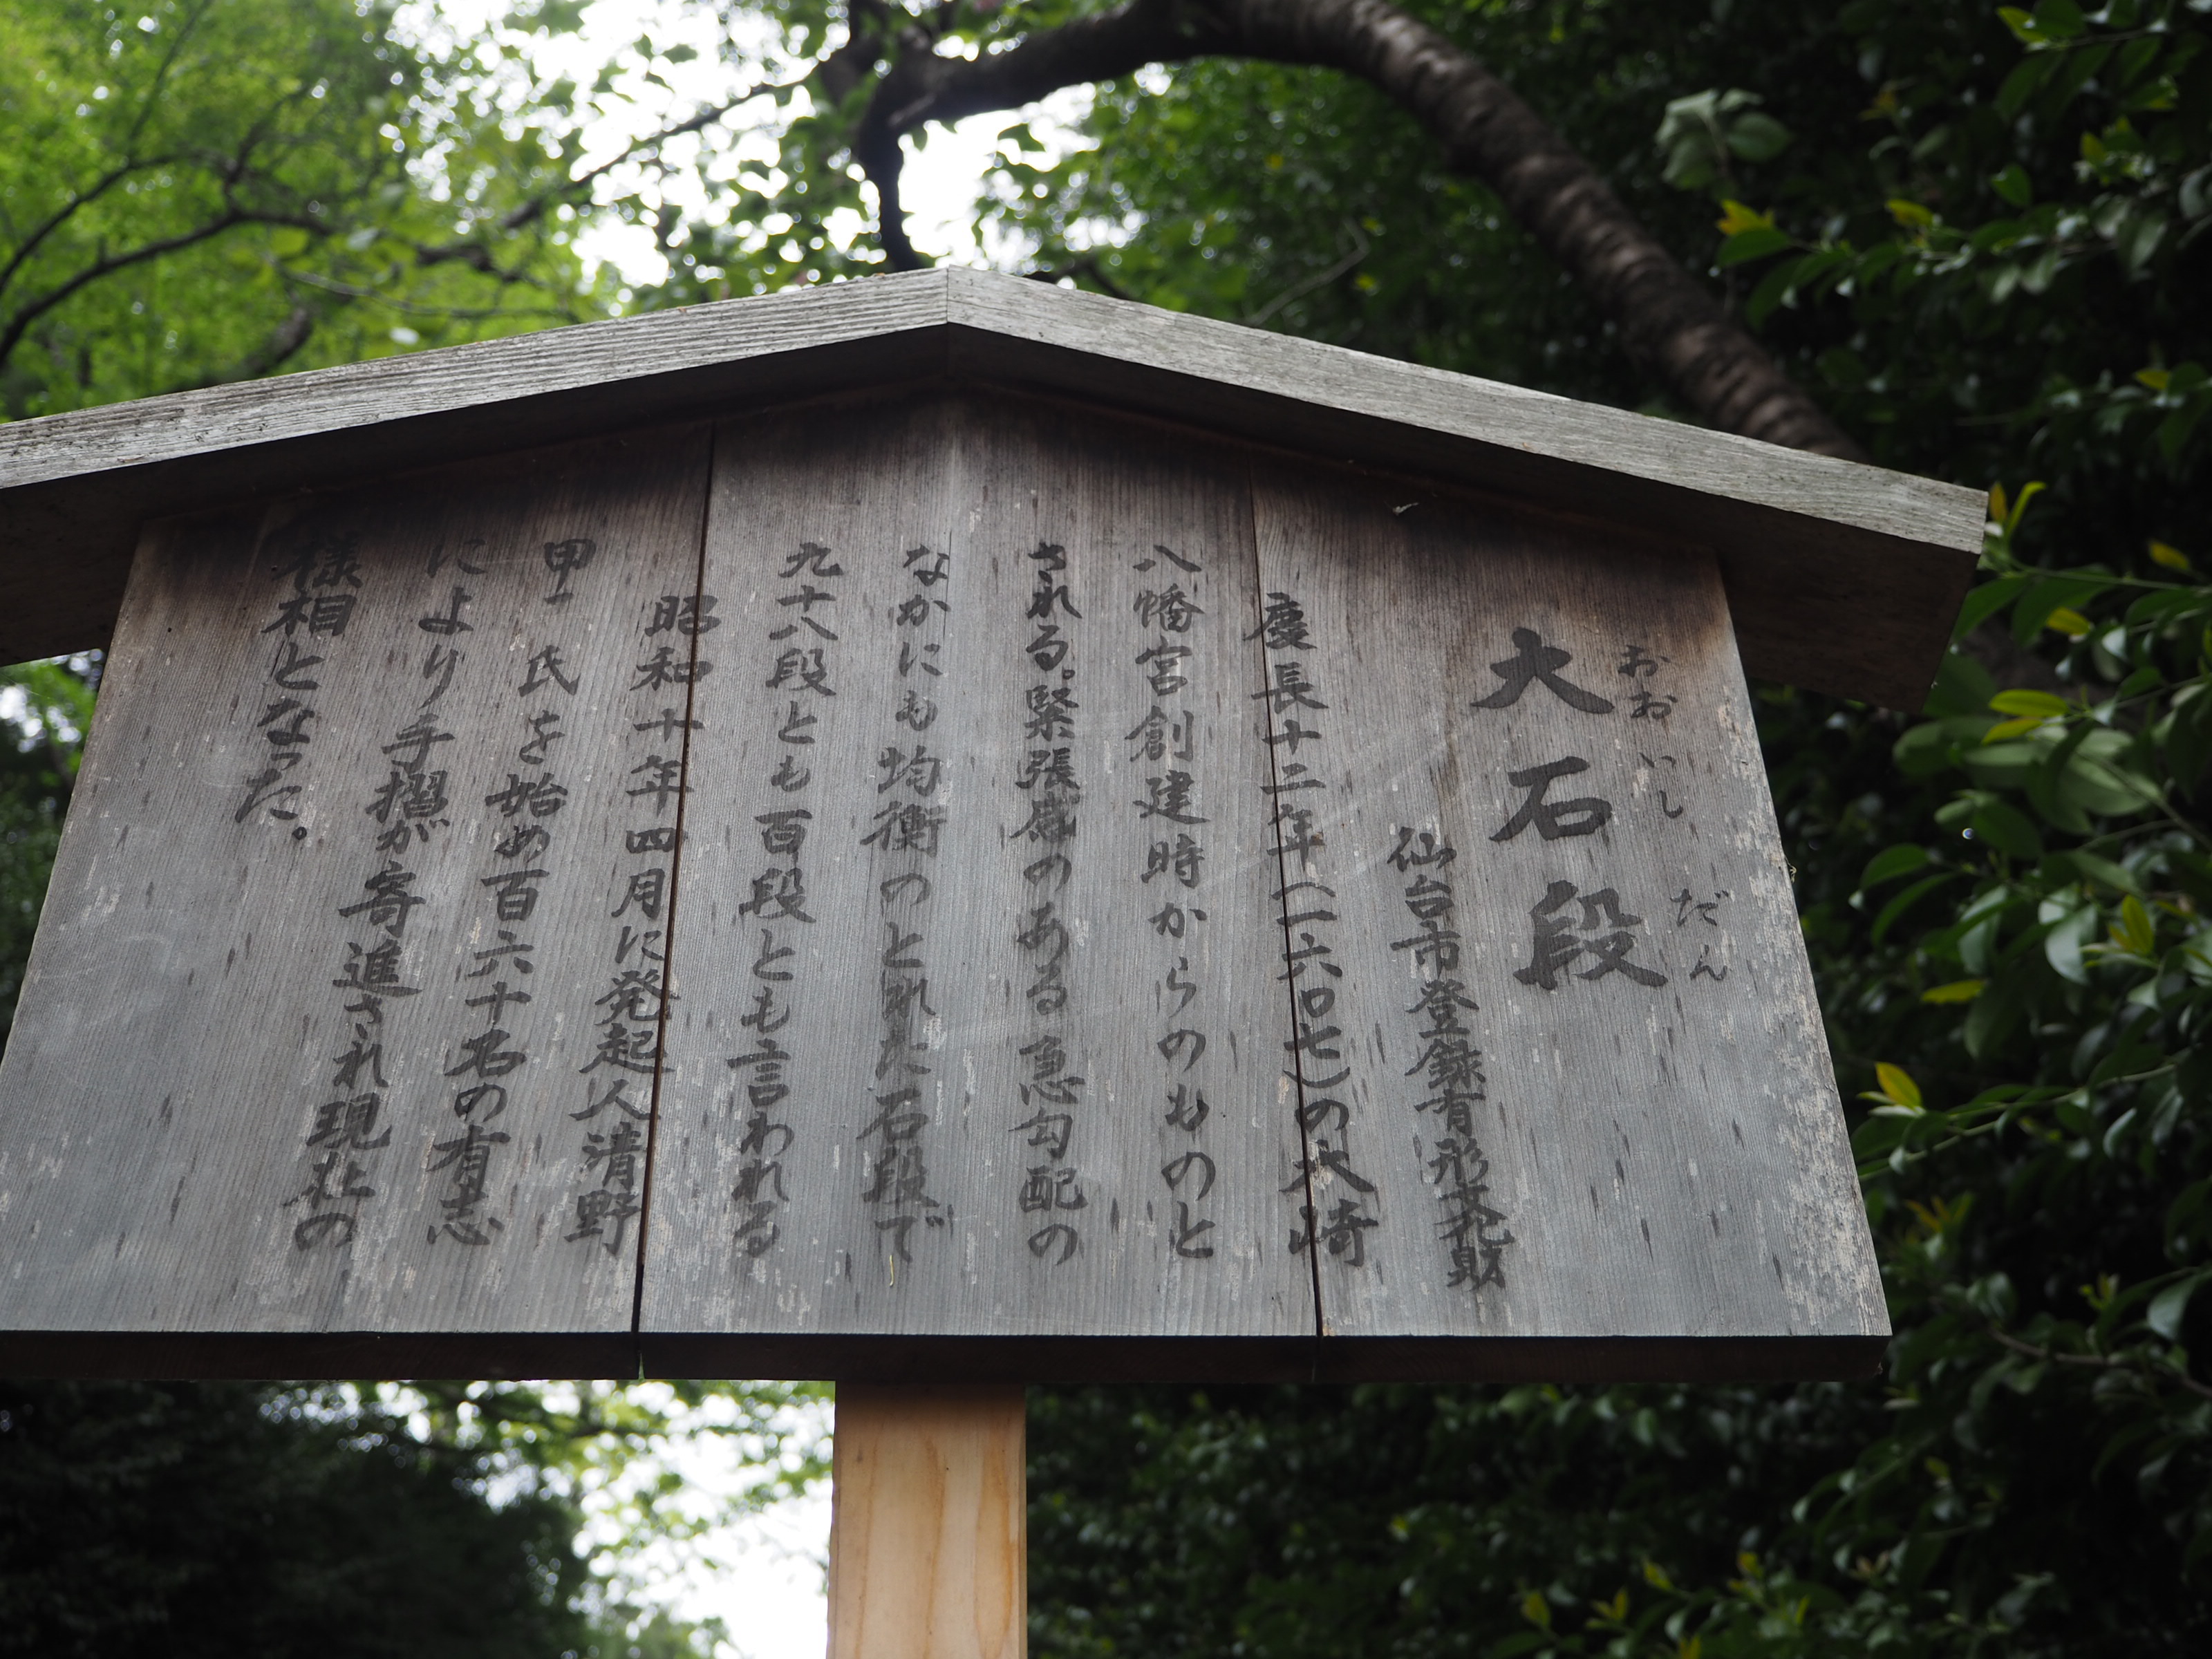 おおいしだん
大石段
仙台市登録有形文化財
慶長十二年(一六〇七)の大崎
八幡宮創建時からのものと
される。緊張感のある急勾配の
なかにも均衡のとれた石段で
九十八段とも百段とも言われる
昭和十年四月に発起人清野
甲一氏を始め百六十名の有志
により手摺が寄進され現在の
様相となった。